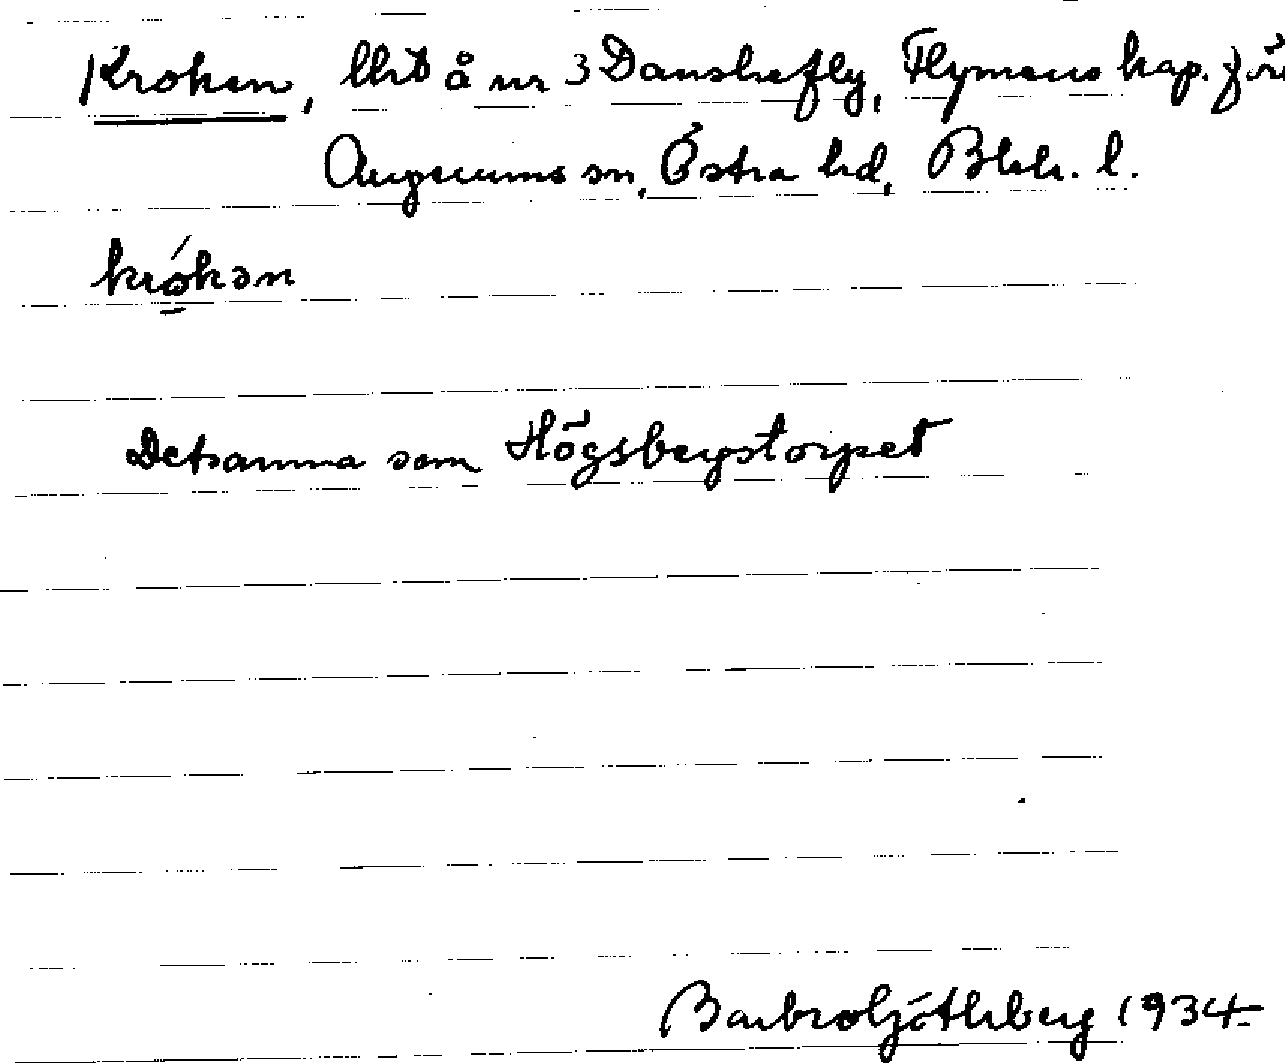 Krokən, lht å nr 3 Danskefly, Flymens kap. förs.
Augerums sn, Östra hd, Blek. l.
krókən
Detsamma som Högsbergstorpet
Barbro Göthberg 1934